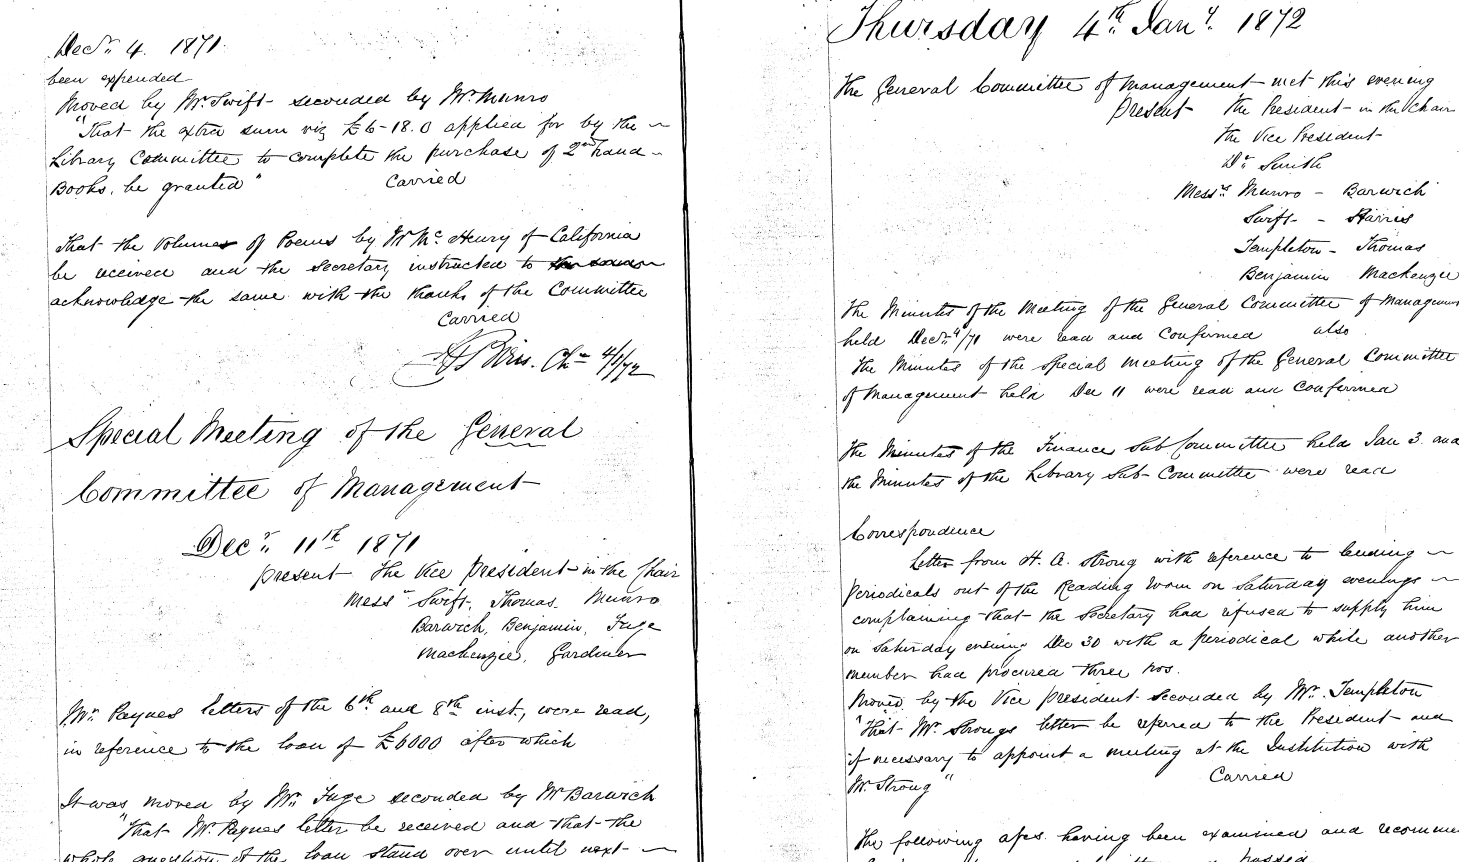 Decr. 4. 1871.
been expended
Moved by Mr. Swift seconded by Mr. Munro
"That the extra sum viz £6-18.0 applied for by the
Library Committee to complete the purchase of 2nd hand
Books, be granted" Carried
That the Volumes of Poems by Mr Mc Henry of California
be received and the Secretary instructed to
acknowledge the same with the thanks of the Committee
Carried
Chn 4/1/72
Special Meeting of the General
Committee of Management
Decr. 11th 1871
present the Vice President in the Chair
Messrs Swift, Thomas. Munro
Barwich, Benjamin, Fuge
Mackenzie, Gardiner
Mr. Paynes letters of the 6th and 8th inst., were read,
in reference to the loan of £6000 after which
It was moved by Mr. Fuge seconded by Mr Barwich
"That Mr. Paynes letter be received and that the
whole question of the loan stand over until next
Thursday 4th. Jany. 1872
The General Committee of Management met this evening
Present the President in the Chair
the Vice President
Dr Smith
Messrs Munro - Barwich
Swift - Harris
Templeton - Thomas
Benjamin Mackenzie
The Minutes of the Meeting of the General Committee of Managemen
held Decr. 4/71 were read and Confirmed also
The Minutes of the Special Meeting of the General Committee
of Management held Dec 11 were read and Confirmed
The Minutes of the Finance Sub Committee held Jan 3. and
the Minutes of the Library Sub-Committee were read
Correspondence
Letter from H. A. Strong with reference to lending
Periodicals out of the Reading room on Saturday evenings
complaining that the Secretary had refused to supply him
on Saturday evening Dec 30 with a periodical while another
member had procured three nos.
Moved by the Vice President seconded by Mr. Templeton
"That Mr Strongs letter be referred to the President and
if necessary to appoint a meeting at the Institution with
Mr. Strong" Carried
The following a/cs. having been examined and recomme
passed